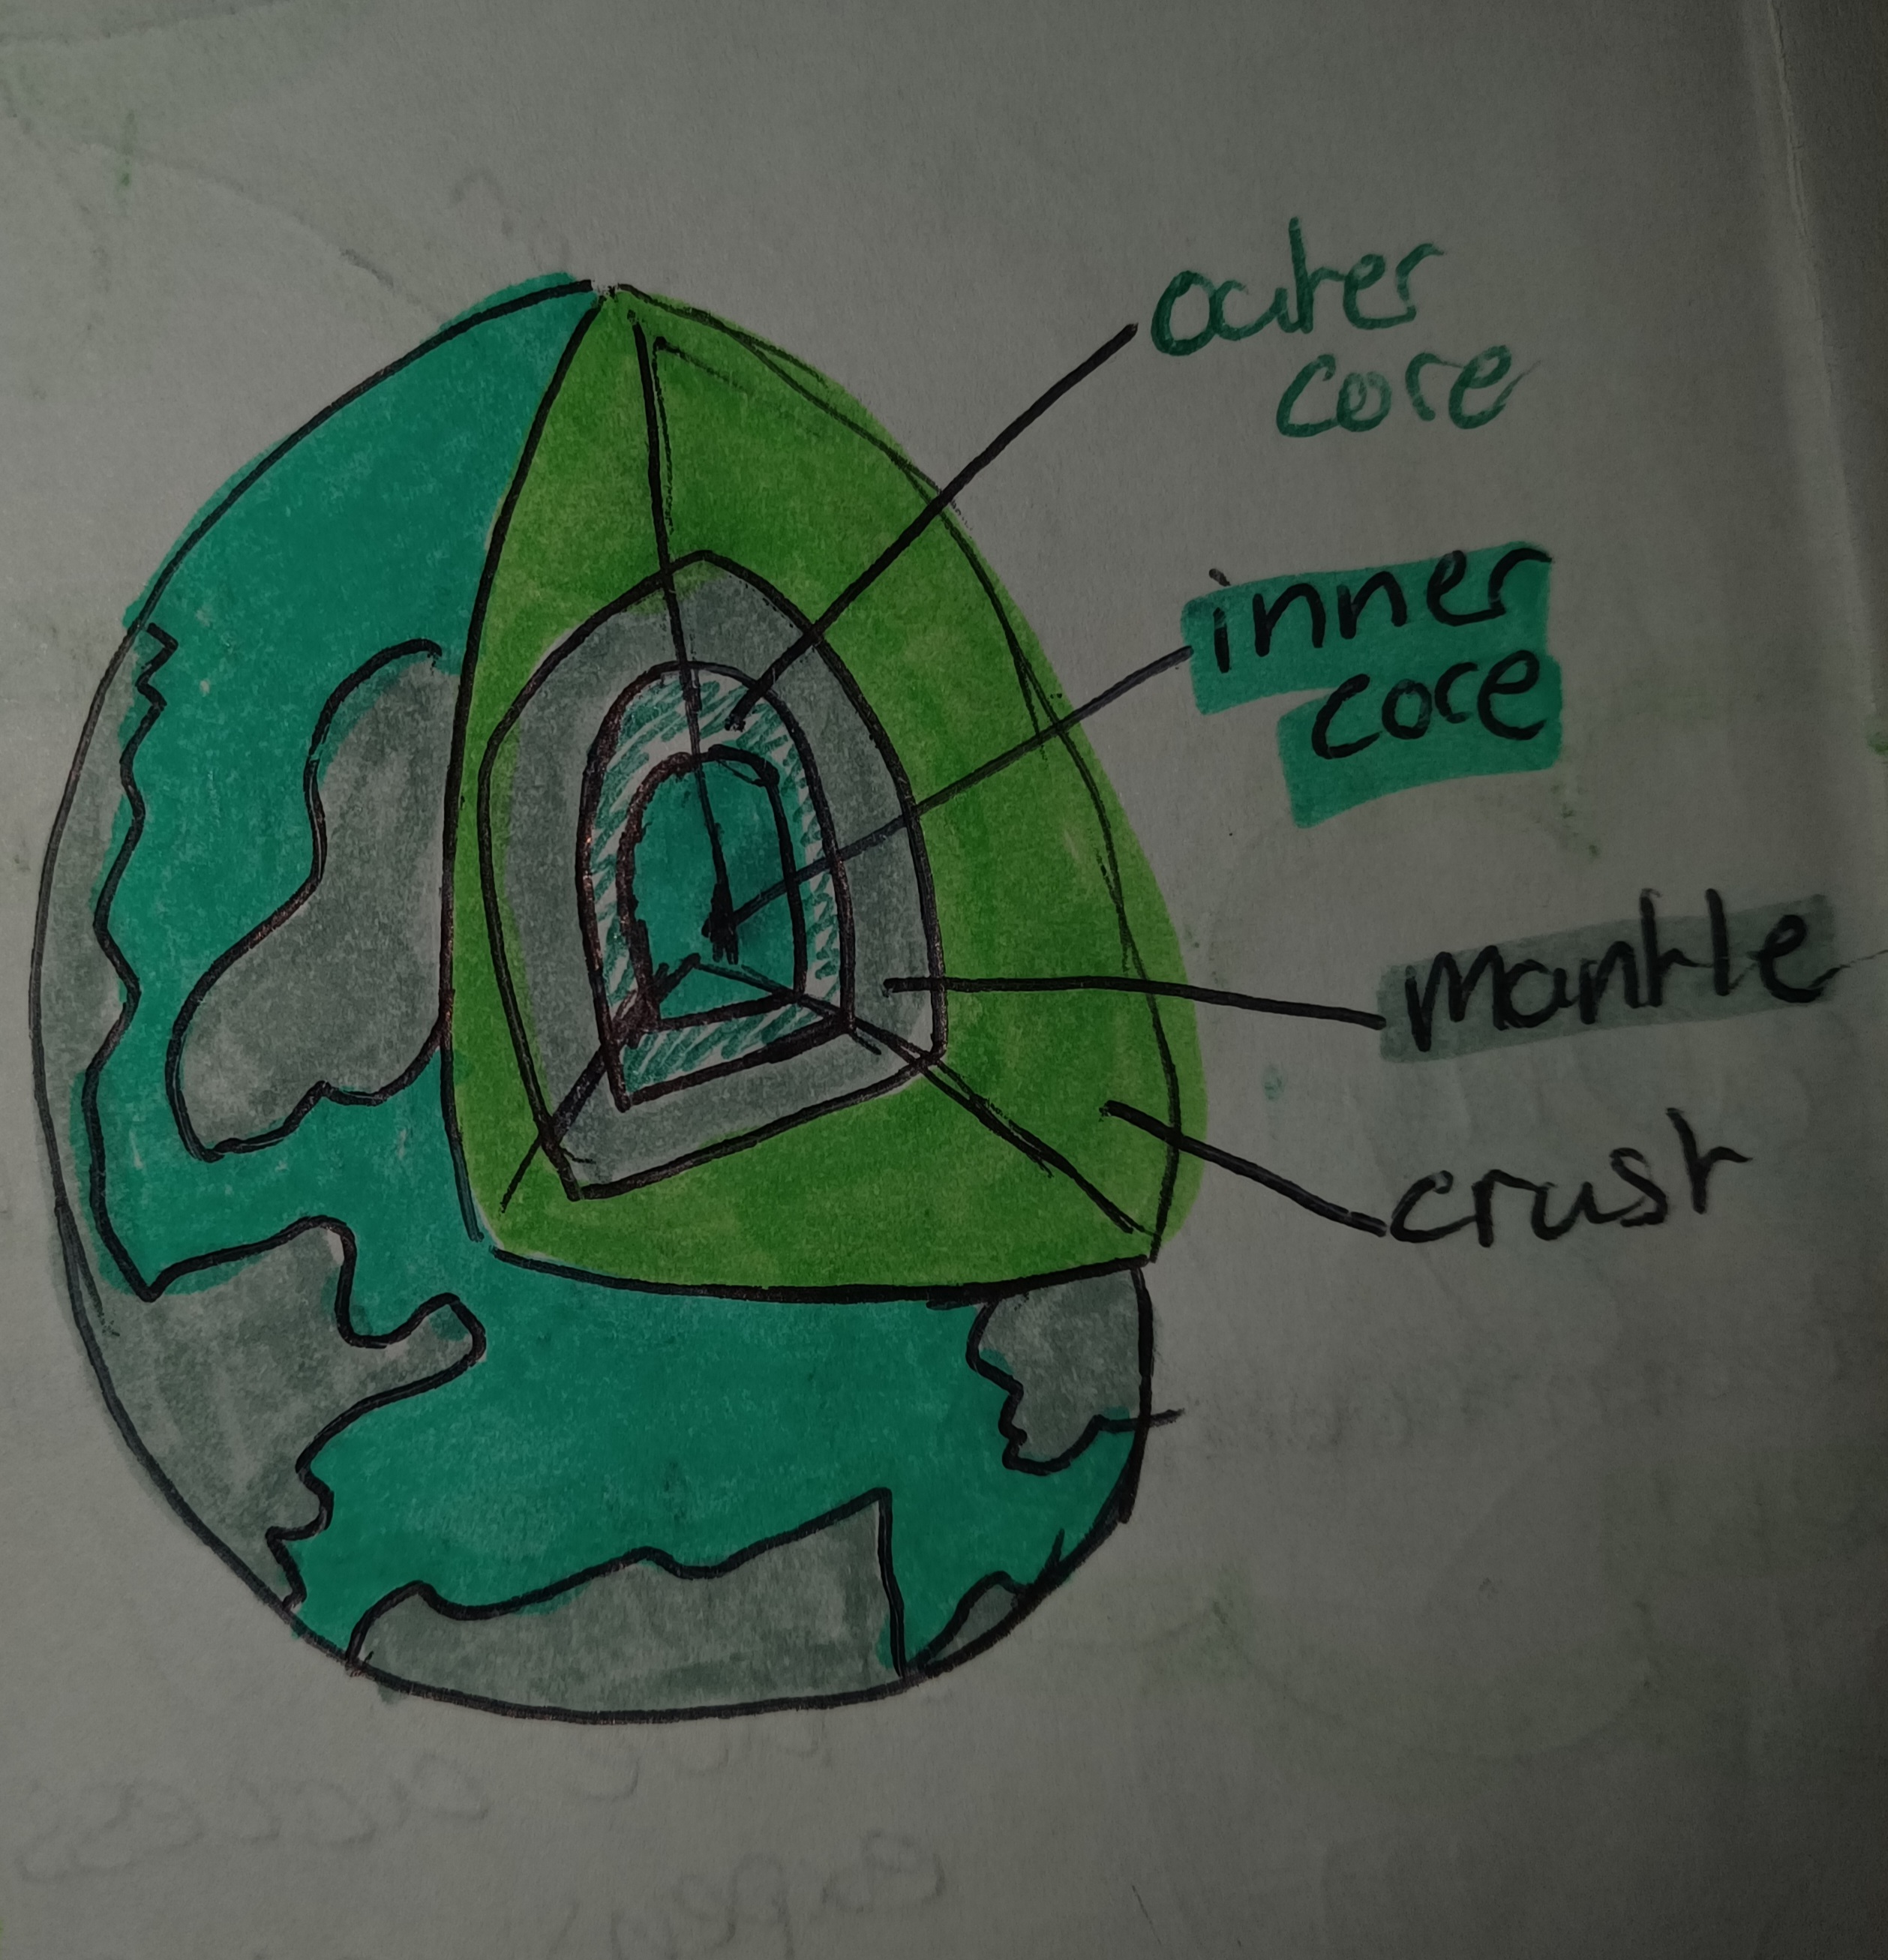 outer
core
inner
core
mantle
crust